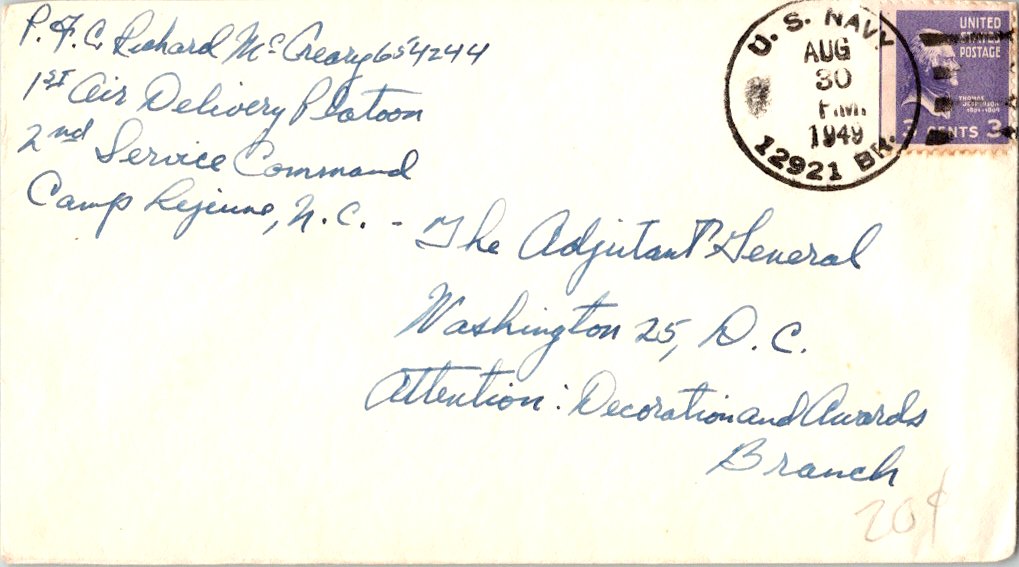 P.F.C. Richard McCreary 654244
1st Air Delivery Platoon
2nd Service Command
Camp Lejeune, N.C. -
The Adjutant General
Washington 25, D.C.
Attention: Decoration and Awards
Branch
20¢
U. S. NAVY
AUG
30
P.M.
1949
12921 BR.
UNITED
STATES
POSTAGE
THOMAS
JEFFERSON
1801-1809
3 CENTS 3